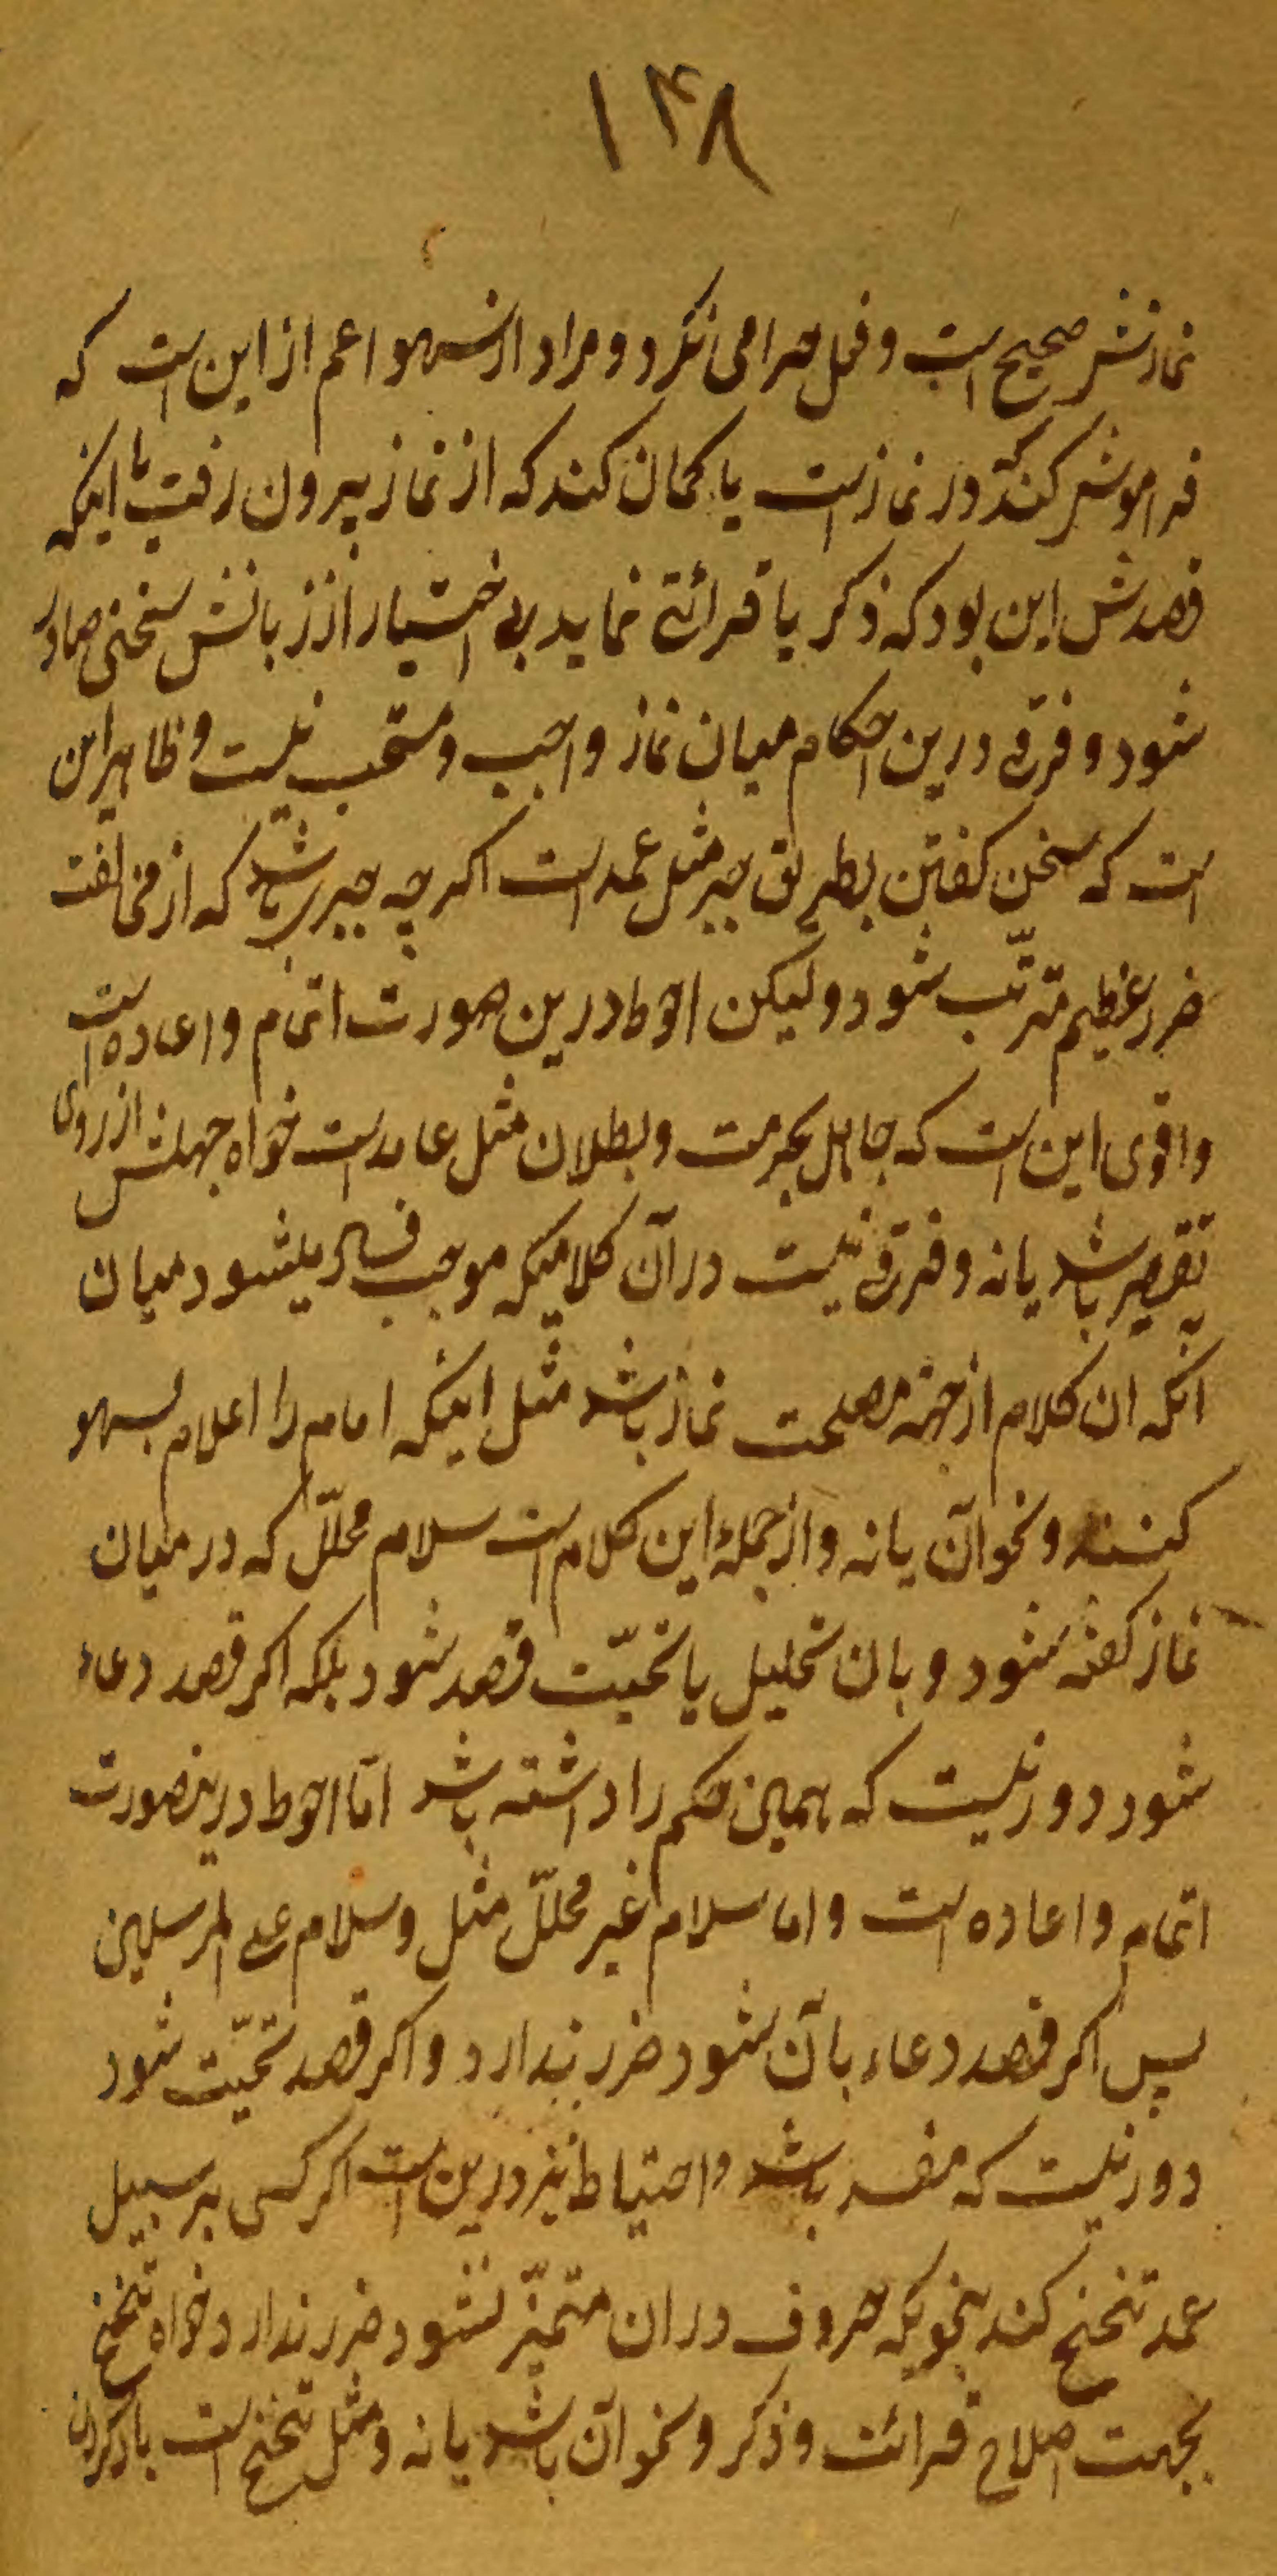 ۱۴۸
نمازش صحیح است و فعل حرامی نکرد و مراد از سهو اعم از این است که
فراموش کند که در نماز است یا کمان کند که از نماز بیرون رفت یا اینکه
قصدش این بود که ذکر یا قرائتی نماید بی اختیار از زبانش سخنی صادر
شود و فرقی درین احکام میان نماز واجب و مستحب نیست و ظاهر این
است که سخن کفتن بطریق جبر مثل عمد است اکر چه جبری باشد که از مخالفت
ضرر عظیم مترتّب شود و لیکن احوط درین صورت اتمام و اعاده است
و اقوی این است که جاهل بحرمت و بطلان مثل عامد است خواه جهلش از روی
تقصیر باشد یا نه و فرقی نیست در آن کلامیکه موجب فساد میشود میان
آنکه ان کلام از جهة مصلحت نماز باشد مثل اینکه امام را اعلام بسهو
کنند و نحو آن یا نه و از جملهٔ این کلام است سلام محلّل که در میان
نماز کفته شود و بان تحلیل یا تحیّت قصد شود بلکه اکر قصد دعاء
شود دور نیست که همین حکم را داشته باشد امّا احوط درینصورت
اتمام و اعاده است و اما سلام غیر محلّل مثل و سلام علی المرسلین
پس اکر قصد دعاء بآن شود ضرر ندارد و اکر قصد تحیّت شود
دور نیست که مفسد باشد و احتیاط نیز درین است اکر کسی بر سبیل
عمد تنحنح کند بنحویکه حروف دران متمیّز نشود ضرر ندارد خواه تنحنح
بجهت اصلاح قرائت و ذکر و نحو آن باشد یا نه و مثل تنحنح است باد کردن